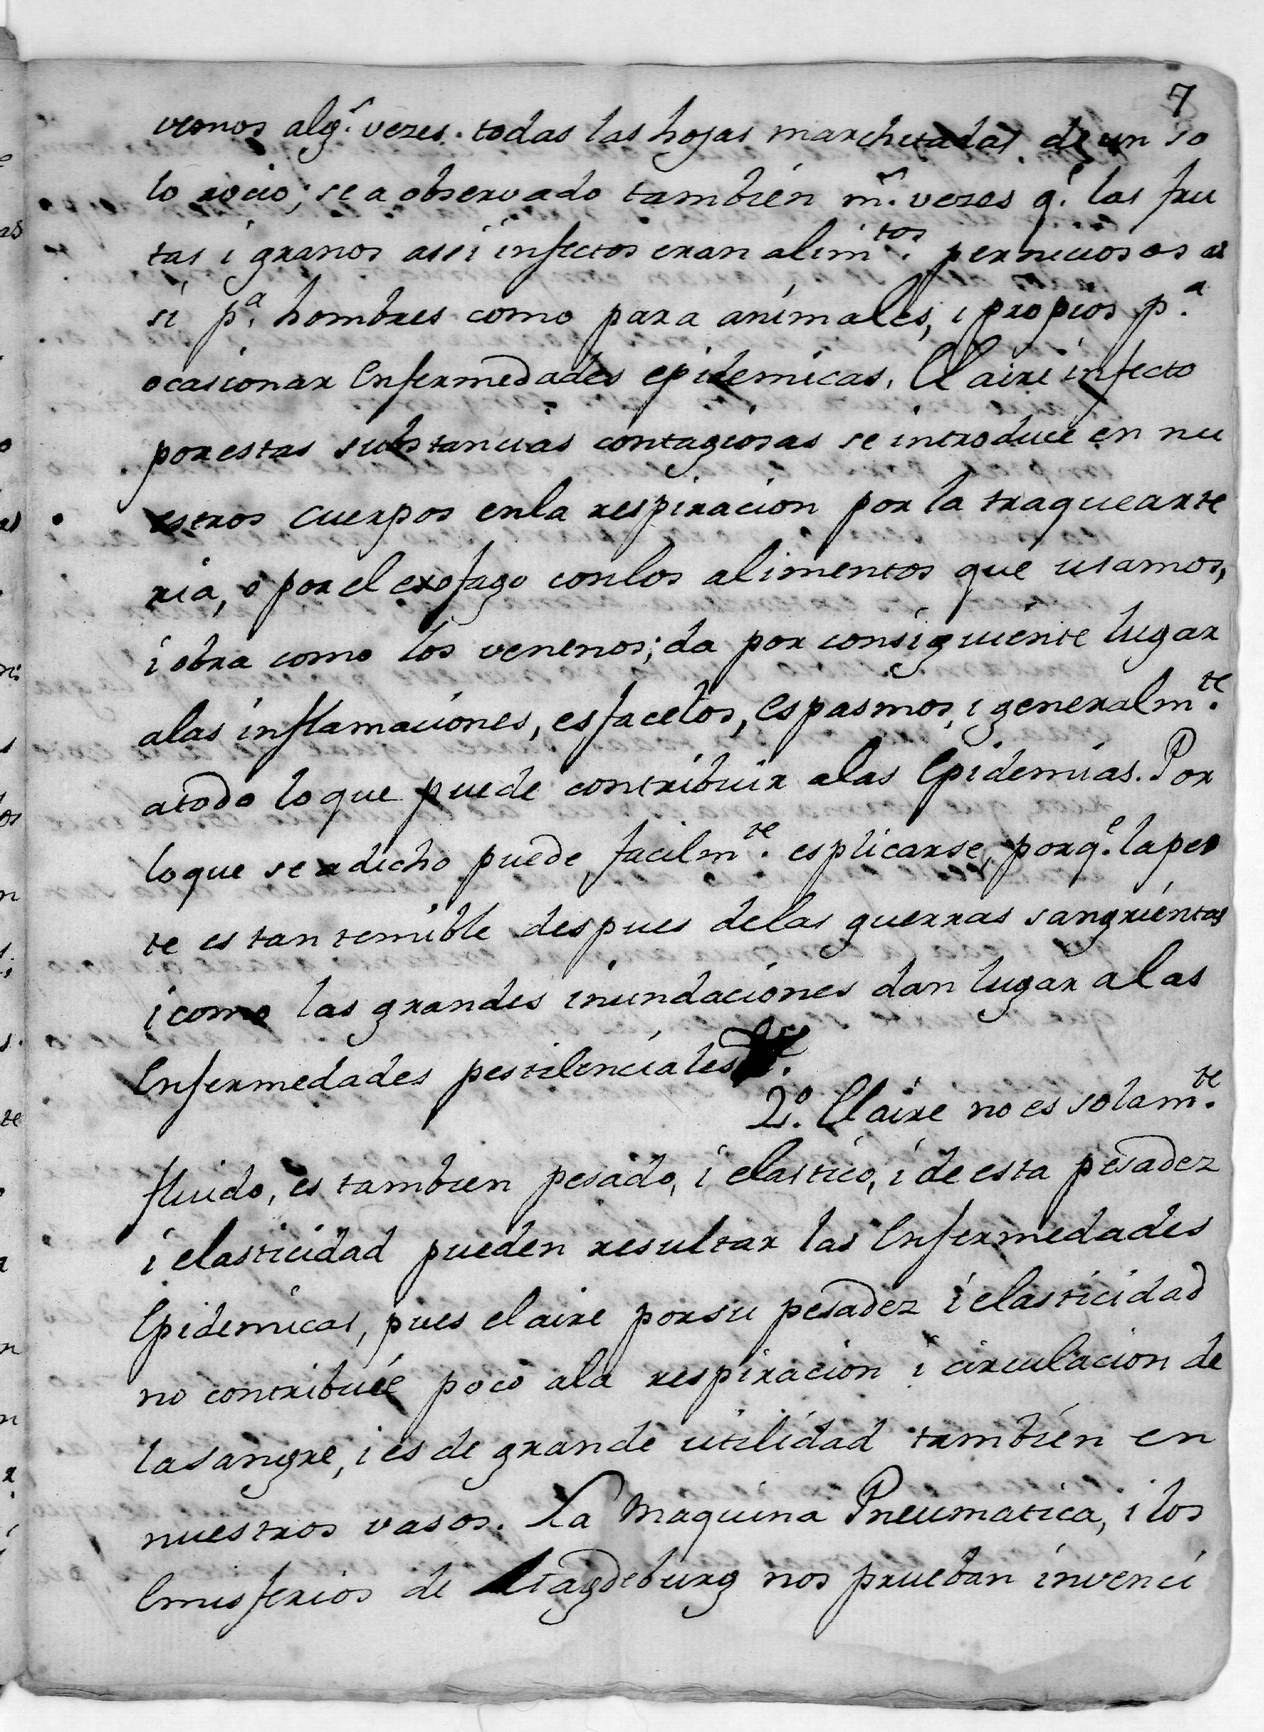 7
vemos alg.s vezes todas las hojas marchitadas de un so
lo rocio; se a observado también m.s vezes q.e las fru
tas i granos assi infectos eran alim.tos perniciosos a
si p.a hombres como para animales, i propios p.a
ocasionar Enfermedades epidemicas. El aire infecto
por estas substancias contagiosas se introduce en nu
estros cuerpos en la respiracion por la traquearte
ria, o por el exofago con los alimentos que usamos,
i obra como los venenos; da por consiguiente lugar
alas inflamaciones, esfacelos, espasmos, i generalm.te
atodo lo que puede contribuir alas Epidemias. Por
lo que se a dicho puede facilm.te esplicarse, porq.e la pes
te es tan temible despues delas guerras sangrientas
i como las grandes inundaciones dan lugar alas
Enfermedades pestilenciales
2.o El aire no es solam.te
fluido, es tambien pesado, i elastico, i de esta pesadez
i elasticidad pueden resultar las Enfermedades
Epidemicas, pues el aire por su pesadez i elasticidad
no contribuié poco ala respiracion i circulacion de
la sangre, i es de grande utilidad también en
nuestros vasos. La Maquina Pneumatica, i los
Emisferios de Magdeburg nos prueban invenci